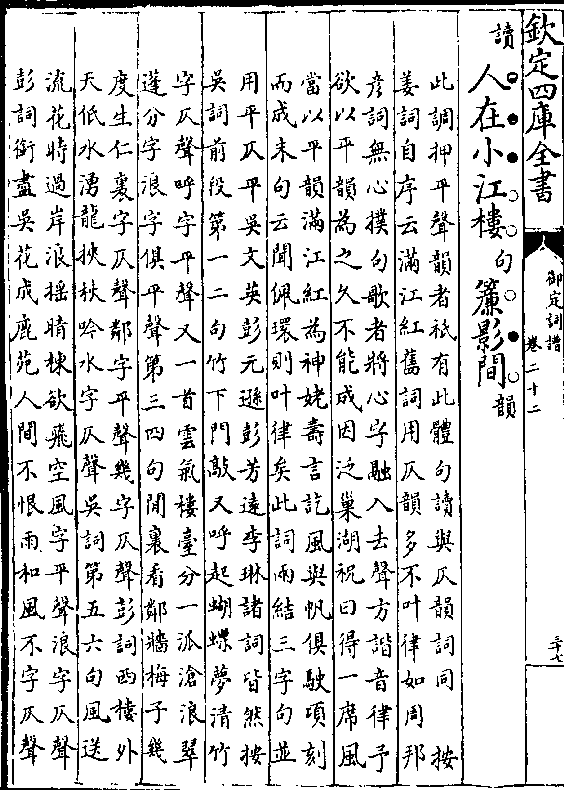 欽定四庫全書
御定詞譜
卷二十二
三十七
讀人在小江樓句簾影間韻
此調押平聲韻者祇有此體句讀與仄韻詞同　按
姜詞自序云滿江紅舊詞用仄韻多不叶律如周邦
彦詞無心撲句歌者將心字融入去聲方諧音律予
欲以平韻為之久不能成因泛巢湖祝曰得一席風
當以平韻滿江紅為神姥壽言訖風與帆俱駛頃刻
而成末句云聞佩環則叶律矣此詞兩結三字句並
用平仄平吳文英彭元遜彭芳逺李琳諸詞皆然按
吳詞前段第一二句竹下門敲又呼起蝴蝶夢清竹
字仄聲呼字平聲又一首雲氣樓臺分一派滄浪翠
蓬分字浪字俱平聲第三四句閒裏看鄰牆梅子幾
度生仁裏字仄聲鄰字平聲幾字仄聲彭詞西樓外
天低水湧龍挾秋吟水字仄聲吳詞第五六句風送
流花時過岸浪摇晴棟欲飛空風字平聲浪字仄聲
彭詞銜盡吳花成鹿苑人間不恨雨和風不字仄聲